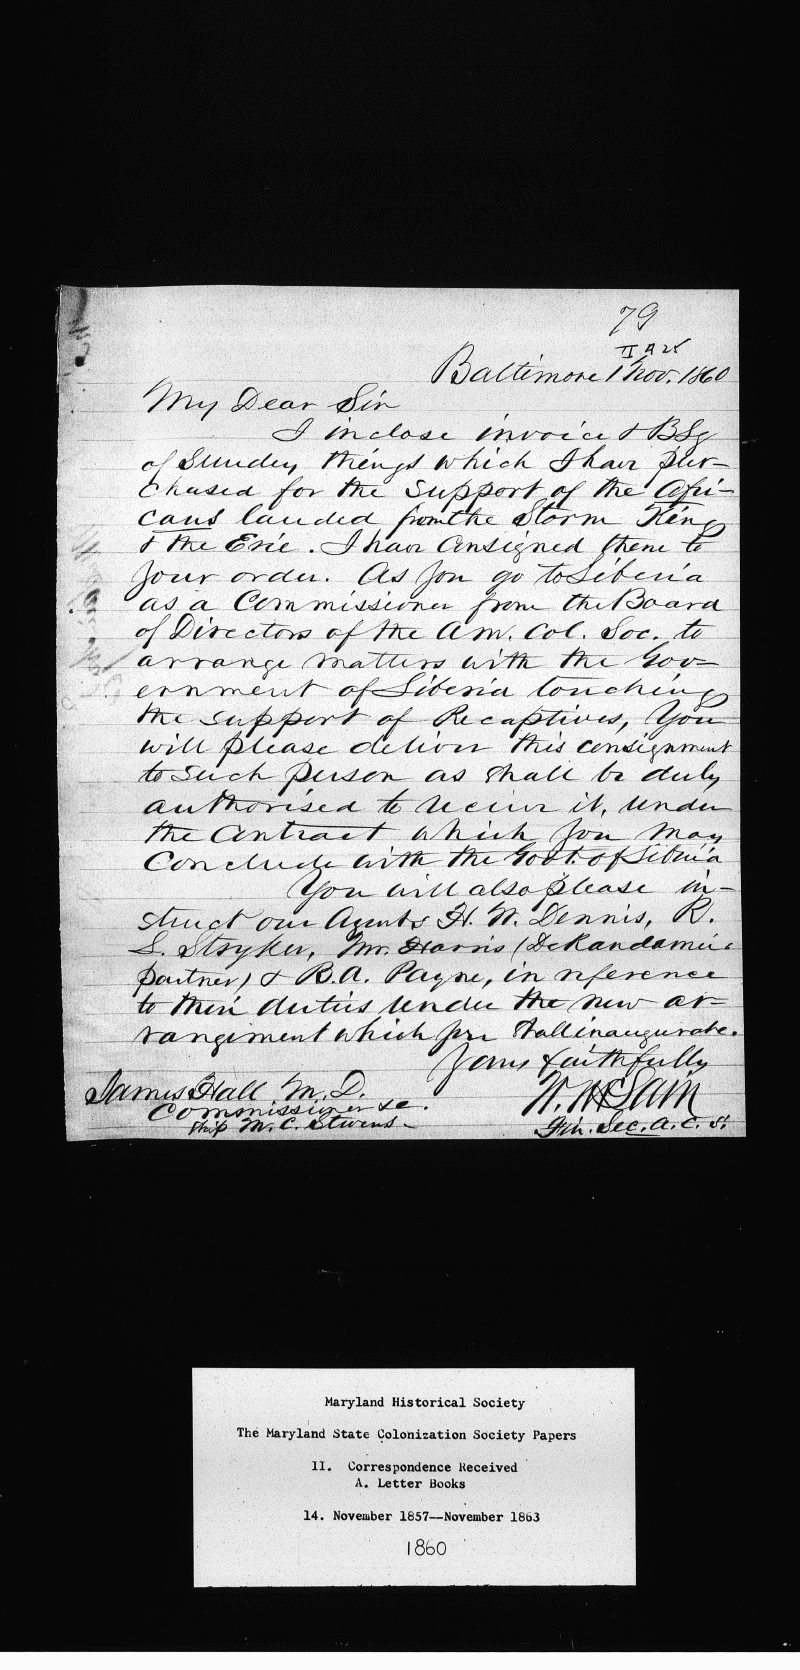 79
II A 25
Baltimore 1 Nov. 1860
My Dear Sir
I inclose invoice & B Lg
of Sundry things which I have pur-
chased for the support of the Afri-
cans landed from the Storm King
& the Erie. I have consigned them to
your order. As you go to Liberia
as a Commissioner from the Board
of Directors of the Am. Col. Soc. to
arrange matters with the Gov-
ernment of Liberia touching
the support of Recaptives, You
will please deliver this consignment
to such person as shall be duly
authorised to receive it, under
the Contract which you may
Conclude with the Govt. of Liberia
You will also please in-
struct our Agents H. W. Dennis, R.
S. Stryker, Mr. Harris (
partner) & B. A. Payne, in reference
to their duties under the new ar-
rangement which you shall inaugurate.
Yours faithfully
James Hall M. D.
Commissioner &c.
Ship M. C. Stevens.
W. McLain
Fin. Sec. A. C. S.
Maryland Historical Society
The Maryland State Colonization Society Papers
11. Correspondence Received
A. Letter Books
14. November 1857--November 1863
1860